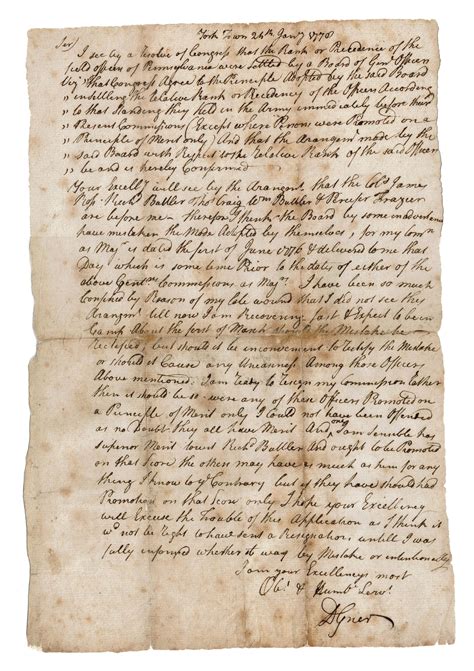 York Town 24th Jany 1778
Sir/
I see by a Resolve of Congress that the Rank or Precedence of the
field officers of Pennsylvania were settled by a Board of Genl Officers
Viz "That Congress Agree to the Principle Adopted by the said Board
" in settling the relative Rank or Precedency of the Officers According
" to that Standing they held in the Army immediately before their
" Present Commissions (Except where Persons were Promoted on a
" Principle of Merit only) And that the Arangemt made by the
" said Board with Respect to the relative Rank of the said Officers
" be and is hereby Confirmed
Your Excelly will see by the Arangmt that the Cols James
Ross Richd Buttler Thos Craig Wm Buttler & Persifer Frazier
are before me — therefore I think the Board by some inadvertence
have mistaken the Mode Adopted by themselves, for my Comn
as Majr is dated the first of June 1776 & delivered to me that
Day which is some time Prior to the dates of either of the
above Gentn Commissions as Majrs I have been so much
Confined by Reason of my late wound that I did not see this
Arangmt till now I am Recovering fast & Expect to be in
Camp About the first of March should the Mistake be
Rectified, but should it be inconvenient to Rectify the Mistake
or should it Cause any Uneasiness Among those Officers
Above mentioned I am ready to Resign my Commission rather
then it should be so were any of these Officers Promoted on
a Principle of Merit only I could not have been Offended
as no Doubt they all have Merit And only I am Sensible has
superior Merit Richd Buttler And ought to be Promoted
on that Score the others may have as much as him for any
thing I know to ye Contrary but if they have should had
Promotion on that score only I hope your Excellency
will Excuse the Trouble of this Application as I think it
wd not be Right to have sent a Resignation untill I was
fully informed whether it was by Mistake or intentionally
I am your Excellencys most
Obt & Humbe Servt